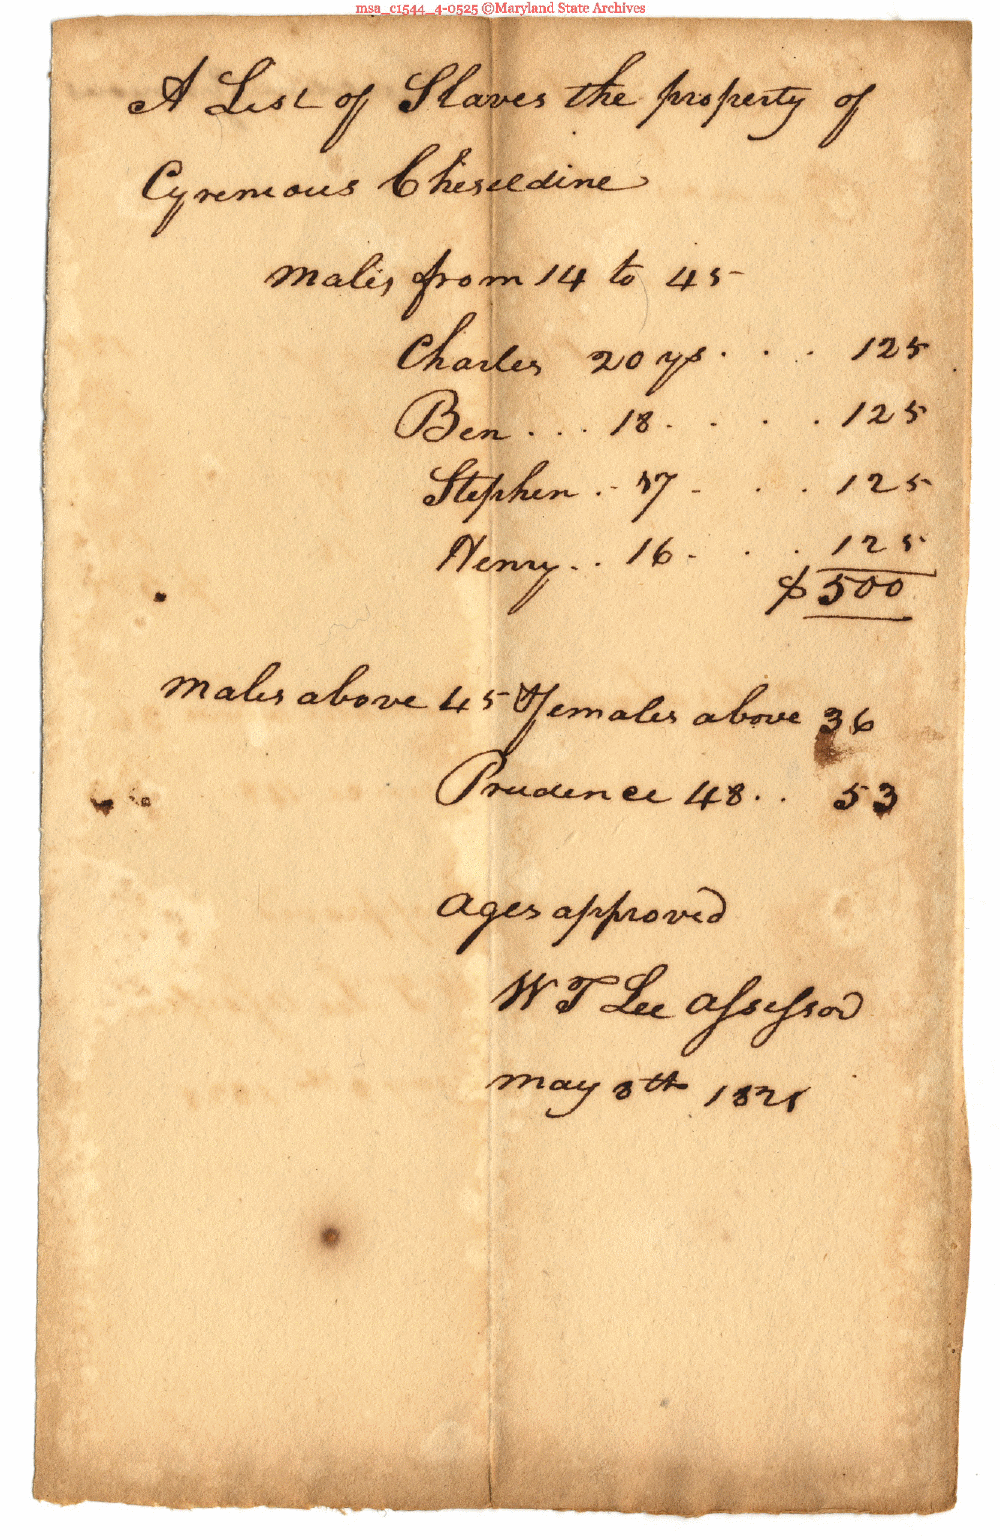 msa_c1544_4-0525 ©Maryland State Archives
A List of Slaves the property of
Cyrenious Cheseldine
males from 14 to 45
Charles 20 ys . . . 125
Ben . . . 18 . . . . 125
Stephen . - 17 - . . 125
Henry . . 16 - . . 125
$ 500
males above 45 & females above 36
Prudence 48 . . 53
ages approved
W T Lee assessor
may 8th 1821